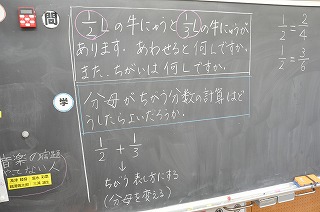 問
1/2Lの牛にゅうと1/3Lの牛にゅうが
あります。あわせると何Lですか。
また、ちがいは何Lですか。
1/2=2/4
1/2=3/6
学
分母がちがう分数の計算はど
うしたらよいだろうか。
1/2+1/3
↓
ちがう表し方にする
(分母を変える)
音楽の宿題
やってない人